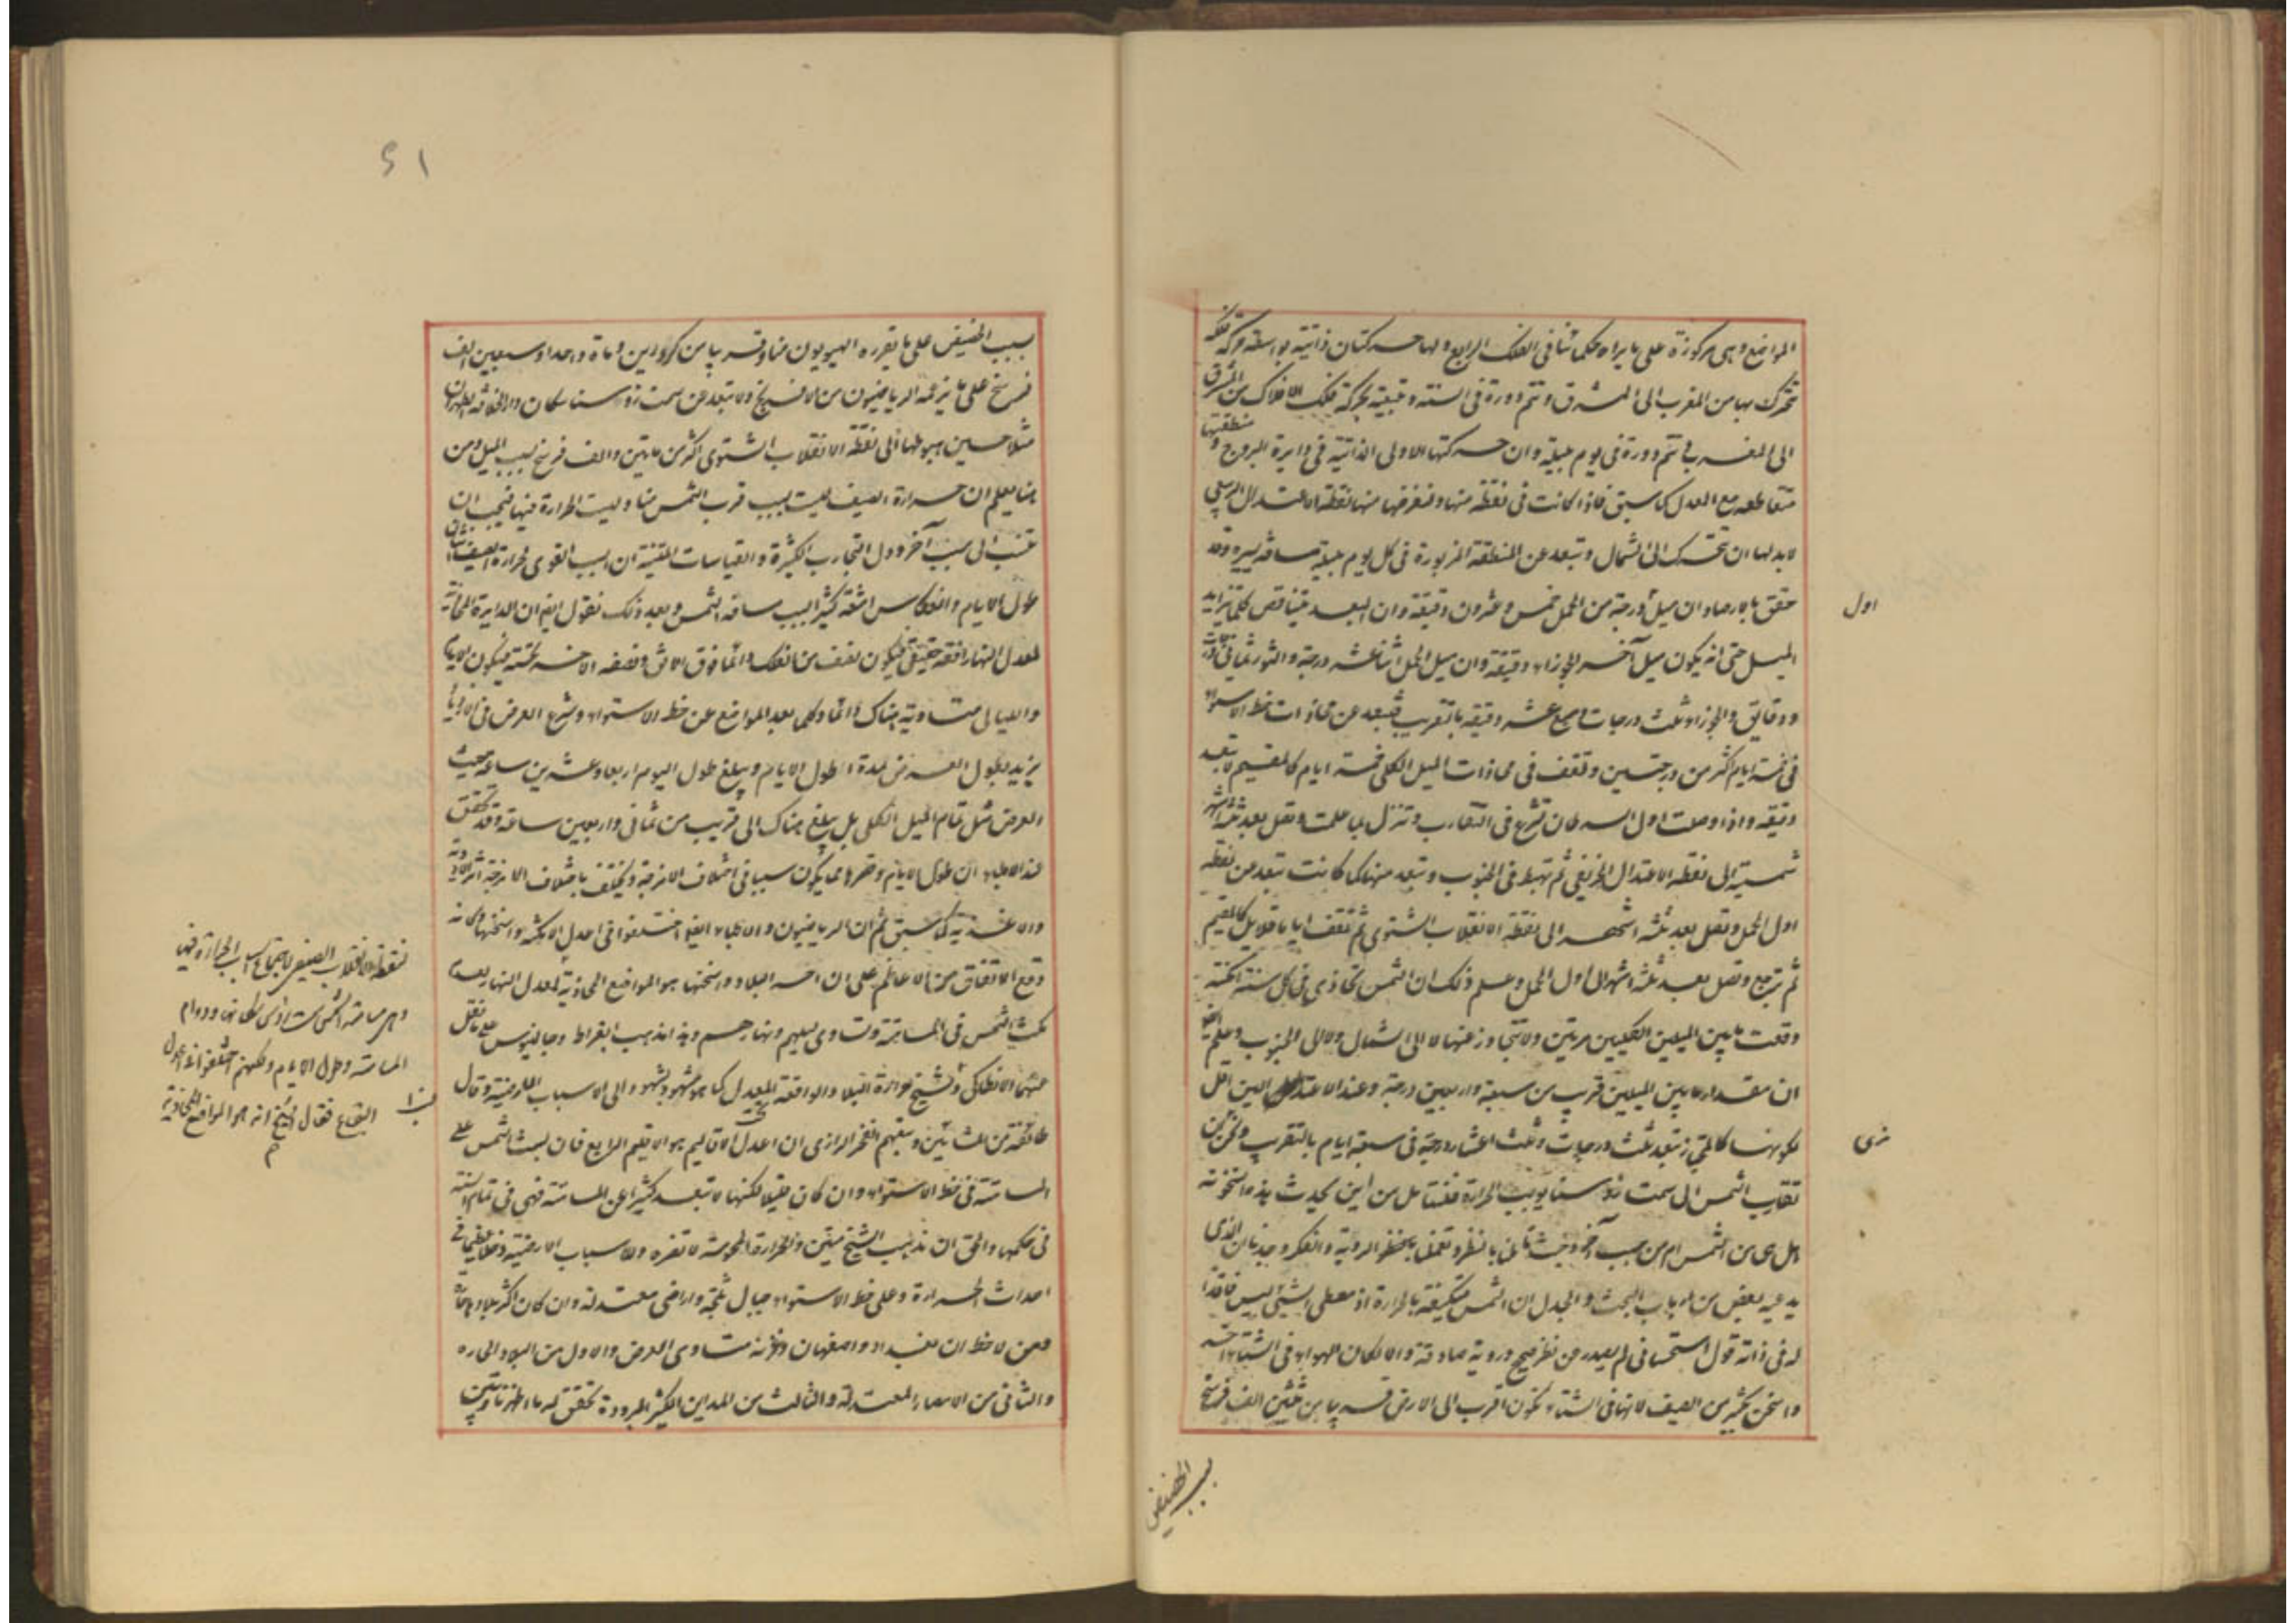 المواضع وهى مركوزة على ما يراه حكمائنا فى الفلك الرابع ولها حركتان ذاتية بواسطة حركة فلكه
تتحرك بها من المغرب الى المشرق وتتم دورة فى السنة وتبعية بحركة فلك الافلاك من المشرق
الى المغرب تتم دورة فى يوم بليلة وان حركتها الاولى الذاتية فى دايرة البروج و منطقتها
متقاطعه مع المعدل كما سبق فاذا كانت فى نقطة منها ولنفرضها منها نقطة الاعتدال الربيعى
لابد لها ان تتحرك الى الشمال وتبعد عن المنطقة المزبورة فى كل يوم بليلة مسافة يسيرة وقد
حقق بالارصاد ان ميل درجة من الحمل خمس وعشرون دقيقة وان البعد يتناقص كلما يتزايد
اول
الميل حتى انه يكون ميل آخر الجوزاء دقيقة وان ميل الحمل اثنا عشر درجة والثور ثمانى درجات
ودقايق والجوزاء ثلث درجات عشر دقيقه بالتقريب فتبعد عن محاذات خط الاستواء
فى خمسة ايام اكثر من درجتين وتقف فى محاذات الميل الكلى خمسة ايام كالمقيم لا تبعد
دقيقه واذا وصلت اول السرطان تشرع فى التقارب وتنزل ما علت وتصل بعد ثلثة اشهر
شمسية الى نقطه الاعتدال الخريفى ثم تهبط فى الجنوب وتبعد منها كما كانت تبعد عن نقطه
اول الحمل وتصل بعد ثلثة اشهر الى نقطة الانقلاب الشتوى ثم تقف اياما قلايل كالمقيم
ثم ترجع وتصل بعد ثلثة اشهر الى اول الحمل وعلم ذلك ان الشمس تحاذى فى كل سنة امكنة
وقعت ما بين الميلين الكليين مرتين ولا تتجاوز عنها لا الى الشمال ولا الى الجنوب وعلم
ان مقدار ما بين الميلين قريب من سبعة واربعين درجة وعند الاعتدالين اقل
لكونها كالمجتاز تبعد ثلث درجات وثلث اعشار درجة فى سبعة ايام بالتقريب
تقارب الشمس الى سمت رؤسنا يوجب الحرارة فلنتامل من اين يحدث هذه السخونة
هل هى من الشمس ام من سبب آخر وجدنا بان الذى
يدعيه بعض من ارباب البحث والجدل ان الشمس متكيفة بالحرارة اذ معطى الشيئ ليس فاقدا
له فى ذاته قول استحسانى لم يصدر عن نظر صحيح وروية صادقة والا لكان الهواء فى الشتاء احر
واسخن بكثير من الصيف لانها فى الشتاء تكون اقرب الى الارض قريبا من ثلثين الف فرسخ
بسبب الحضيض
51
بسبب الحضيض على ما يقرره الهيويون منا وقريبا من كرورين وماة واحدا وسبعين الف
فرسخ على ما يزعمه الرياضيون من الافرنج ولا تبعد عن سمت رؤسنا سكان دار الخلافة الطهران
مثلا حين هبوطها الى نقطة الانقلاب الشتوى اكثر من مايتين والف فرسخ بسبب الميل ومن
هنا يعلم ان حرارة الصيف ليست بسبب قرب الشمس منا وليست الحرارة فيها فيجب ان
تنسب الى سبب آخر ودل التجارب الكثيرة والقياسات المتقنة ان السبب القوى لحرارة الصيف
طول الايام وانعكاس اشعة كثيرة بسبب مسامتة الشمس وبعد ذلك نقول ايضا ان الدايرة المحاذية
لمعدل النهار افقه حقيقى فيكون نصف من الفلك دائما فوق الافق ونصفه الاخر تحته فيكون الايام
والليالى متساوية هناك دائما وكلما بعد المواضع عن خط الاستواء وشرع العرض فى الازدياد
يزيد بطول العرض لمدة اطول الايام ويبلغ طول اليوم اربعا وعشرين ساعة حيث
العرض مثل تمام الميل الكلى بل يبلغ هناك الى قريب من ثمانى واربعين ساعة وقد تحقق
عند الاطباء ان طول الايام وقصرها مما يكون سببا فى اختلاف الامزجة ويختلف باختلاف الامزجة اثر الادوية
والاغذية كما سبق ثم ان الرياضيون والاطباء ايضا اختلفوا فى اعدل الامكنة واسخنها
وقع الاتفاق من الاعاظم على ان احر البلاد واسخنها هو المواضع المحاذية لمعدل النهار لعدم
مكث الشمس فى المسامتة وتساوى ليلهم ونهارهم وهذا مذهب ابقراط وجالينوس على ما نقل
عنهما الانطاكى والشيخ حرارة البلاد الواقعة تحت المعدل كما هو مشهود الى الاسباب الارضية وقال
طائفة من المشائين وتبعهم الفخر الرازى ان اعدل الاقاليم هو الاقليم الرابع فان لبث الشمس على
المسامتة فى خط الاستواء وان كان قليلا لكنها لا تبعد كثيرا عن المسامتة فهى فى تمام السنة
فى حكمها والحق ان مذهب الشيخ متين والحرارة المحسوسة لا تضره والاسباب الارضية دخلا عظيما فى
احداث الحرارة وعلى خط الاستواء جبال ثلجة واراضى معتدلة وان كان اكثر بلادها حارة
ومن لاحظ ان بغداد واصفهان وغزنه متساوى العرض والاول من البلاد الحاره
والثانى من الامصار المعتدلة والثالث من المداين الكثير البرودة تحقق له ما اظهرناه
نقطة الانقلاب الصيفى لاجتماع اسباب الحرارة فيها
وهى مسامتة الشمس ودوام
المسامتة وطول الايام ولكنهم اختلفوا فى اعدل
البقاع فقال الشيخ انه هو المواضع المحاذية